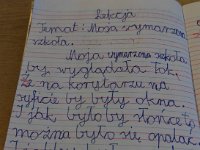 Lekcja
Temat: Moja wymarzona
szkoła.
Moja wymarzona szkoła
by wyglądała tak,
że na korytarzu na
suficie by były okna.
I jak było by słońce to
można było się opalac.